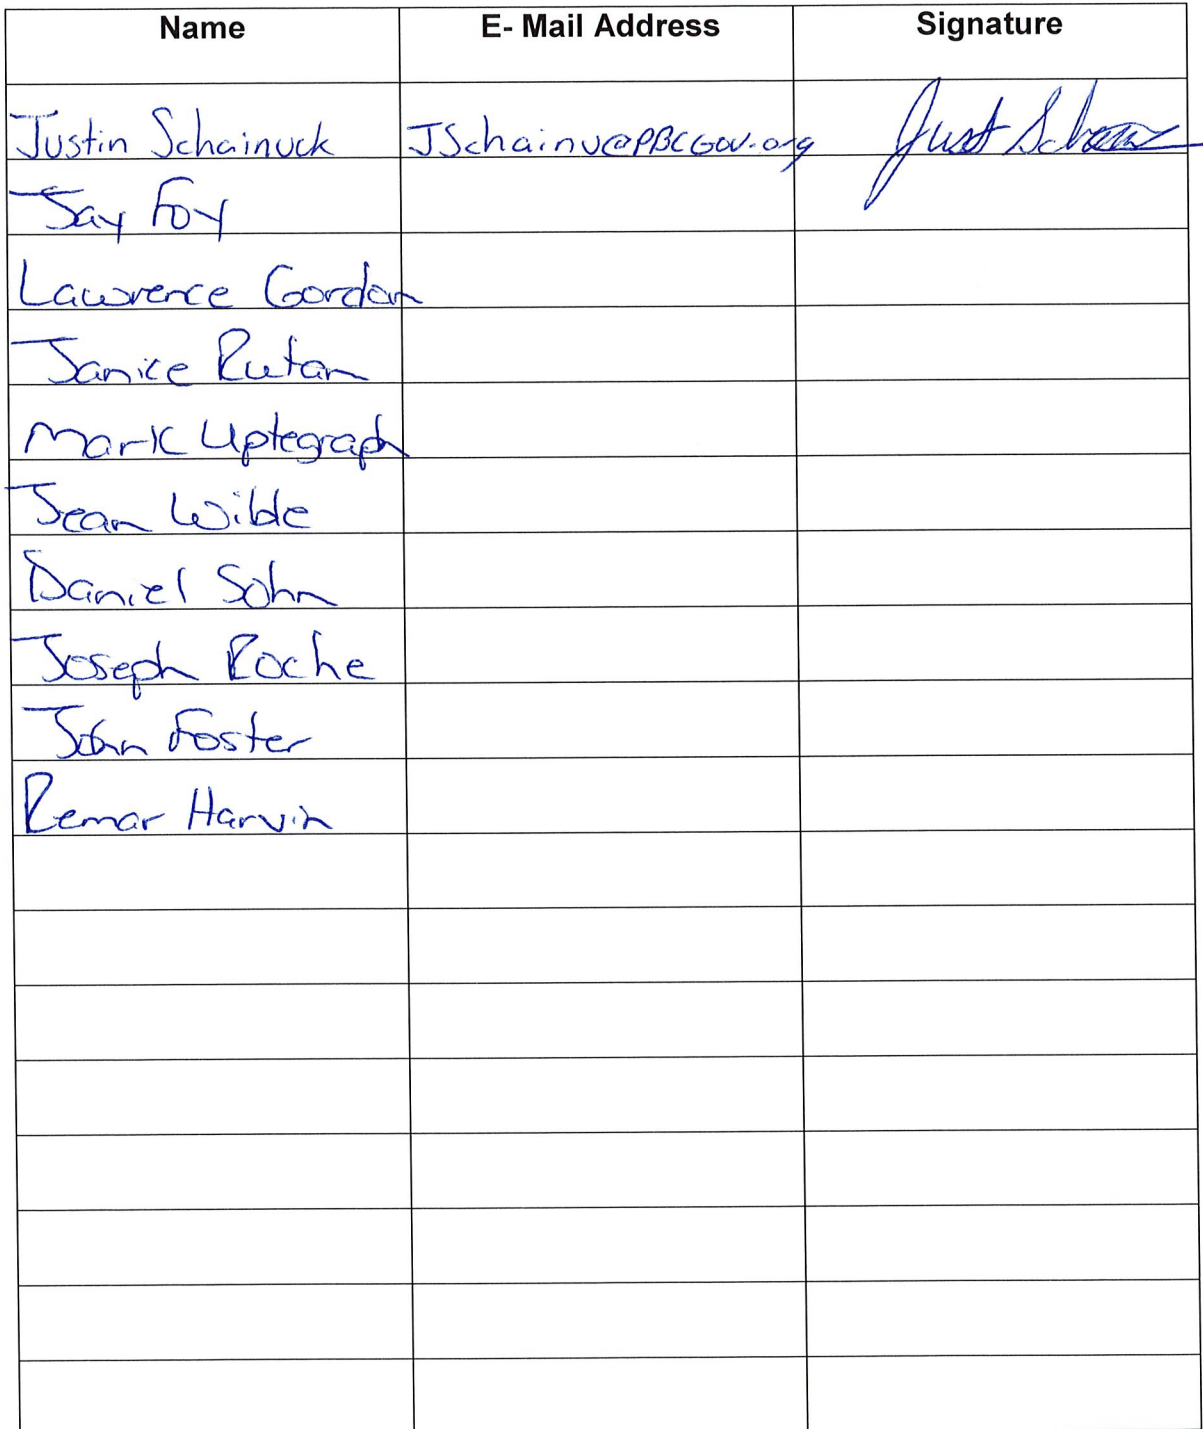 Name E- Mail Address Signature
Justin Schainuck JSchainu@PBCGov.org Just Schain
Jay Foy
Lawrence Gordon
Janice Rutan
Mark Uptegraph
Jean Wilde
Daniel Sohn
Joseph Roche
John Foster
Remar Harvin